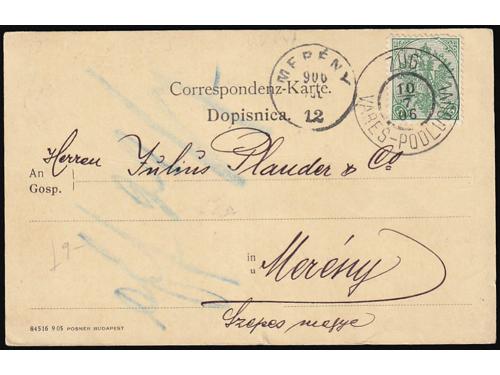 MERÉNY
906
JUL
12
ZUG
10
7
06
VAREŠ-PODLUG
Correspondenz-Karte.
Dopisnica.
An Herren Julius Plander & Co
Gosp.
in
u Merény
Szepes megye
19-
84516 905 POSNER BUDAPEST